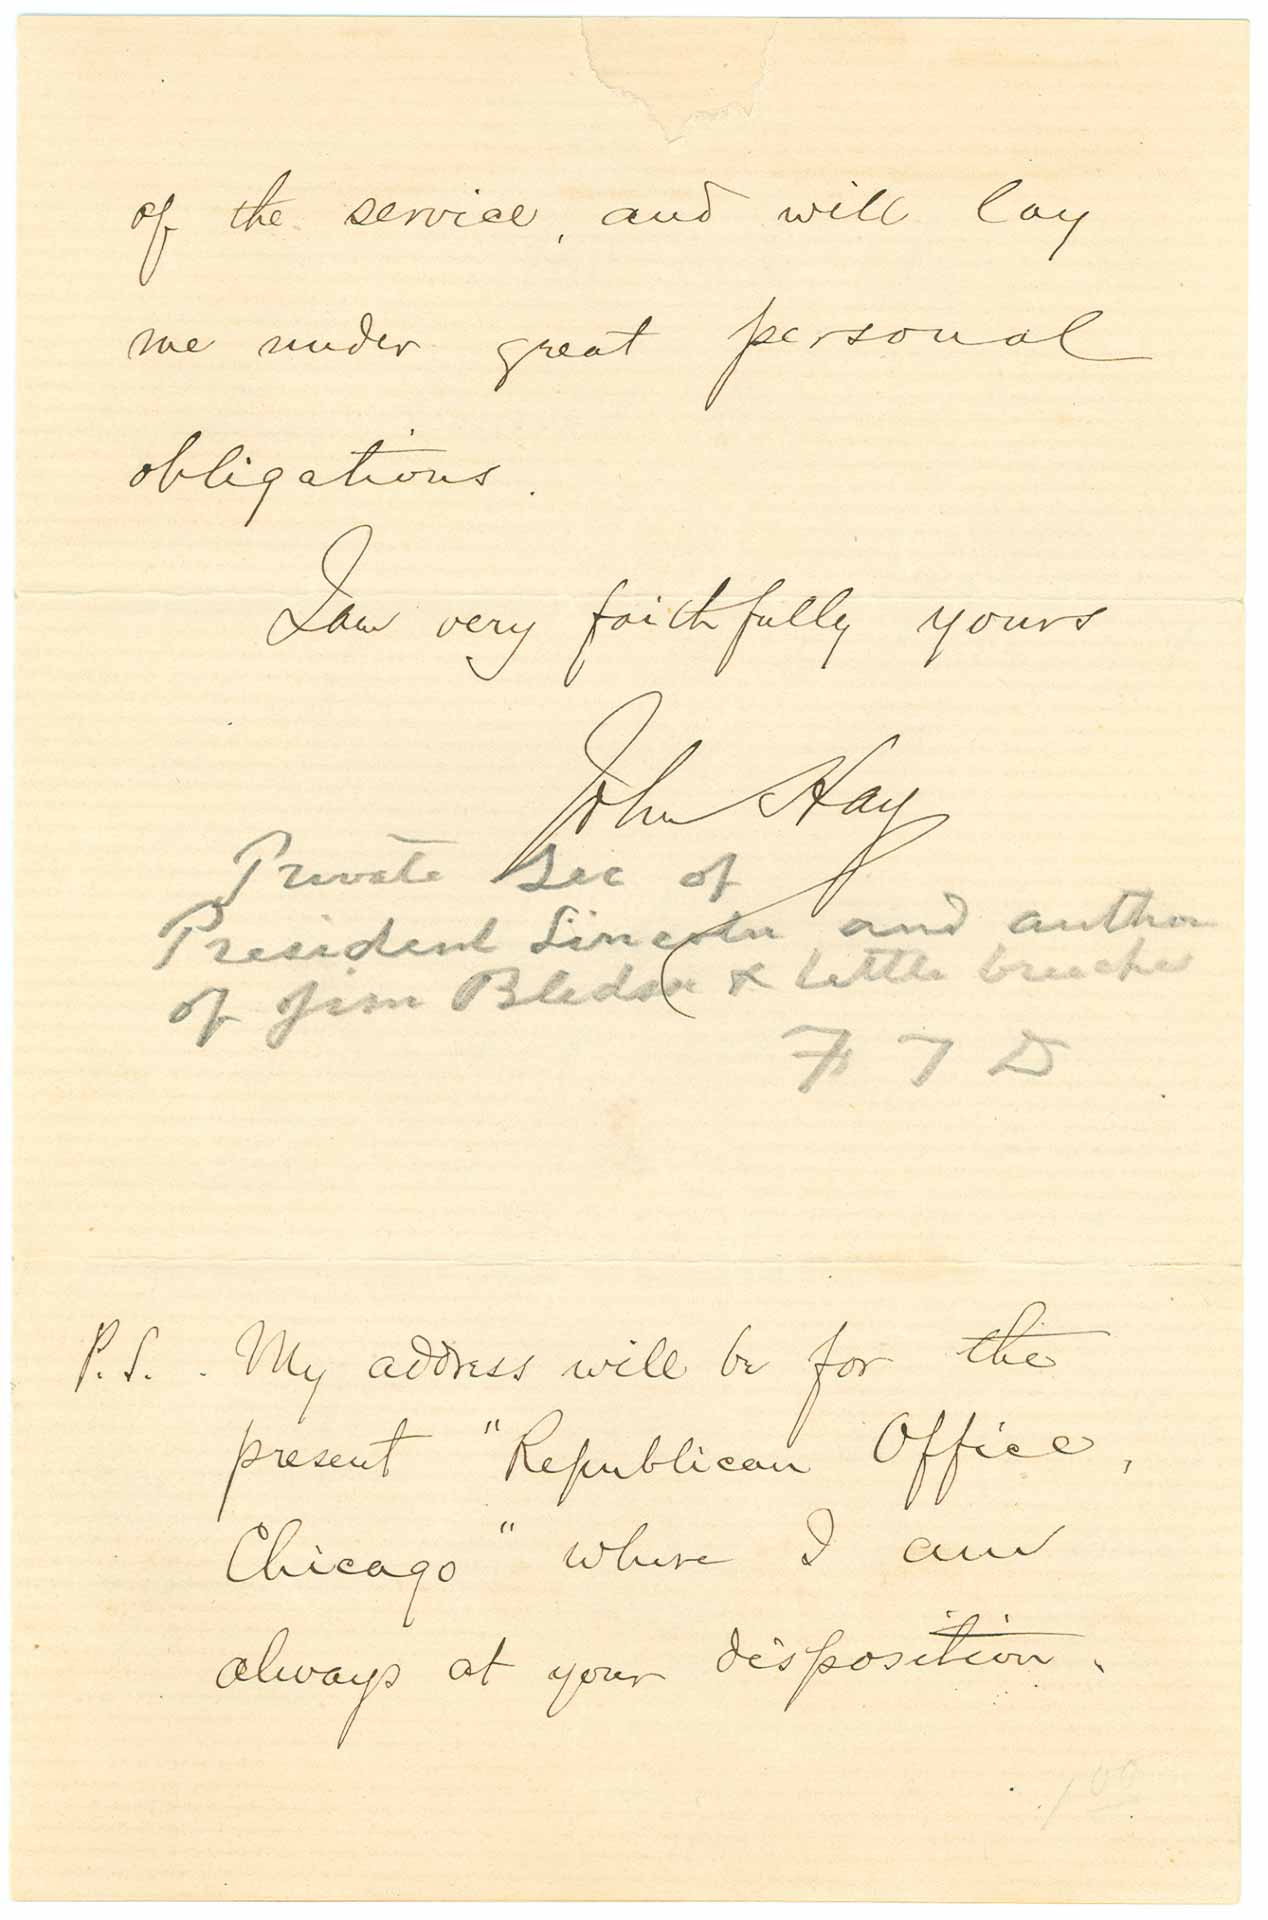 of the service, and will lay
me under great personal
obligations.
I am very faithfully yours
John Hay
Private Sec of
President Lincoln and author
of Jim Bledsoe & Little breeches
F T D
P.S. My address will be for the
present "Republican Office,
Chicago" where I am
always at your disposition.